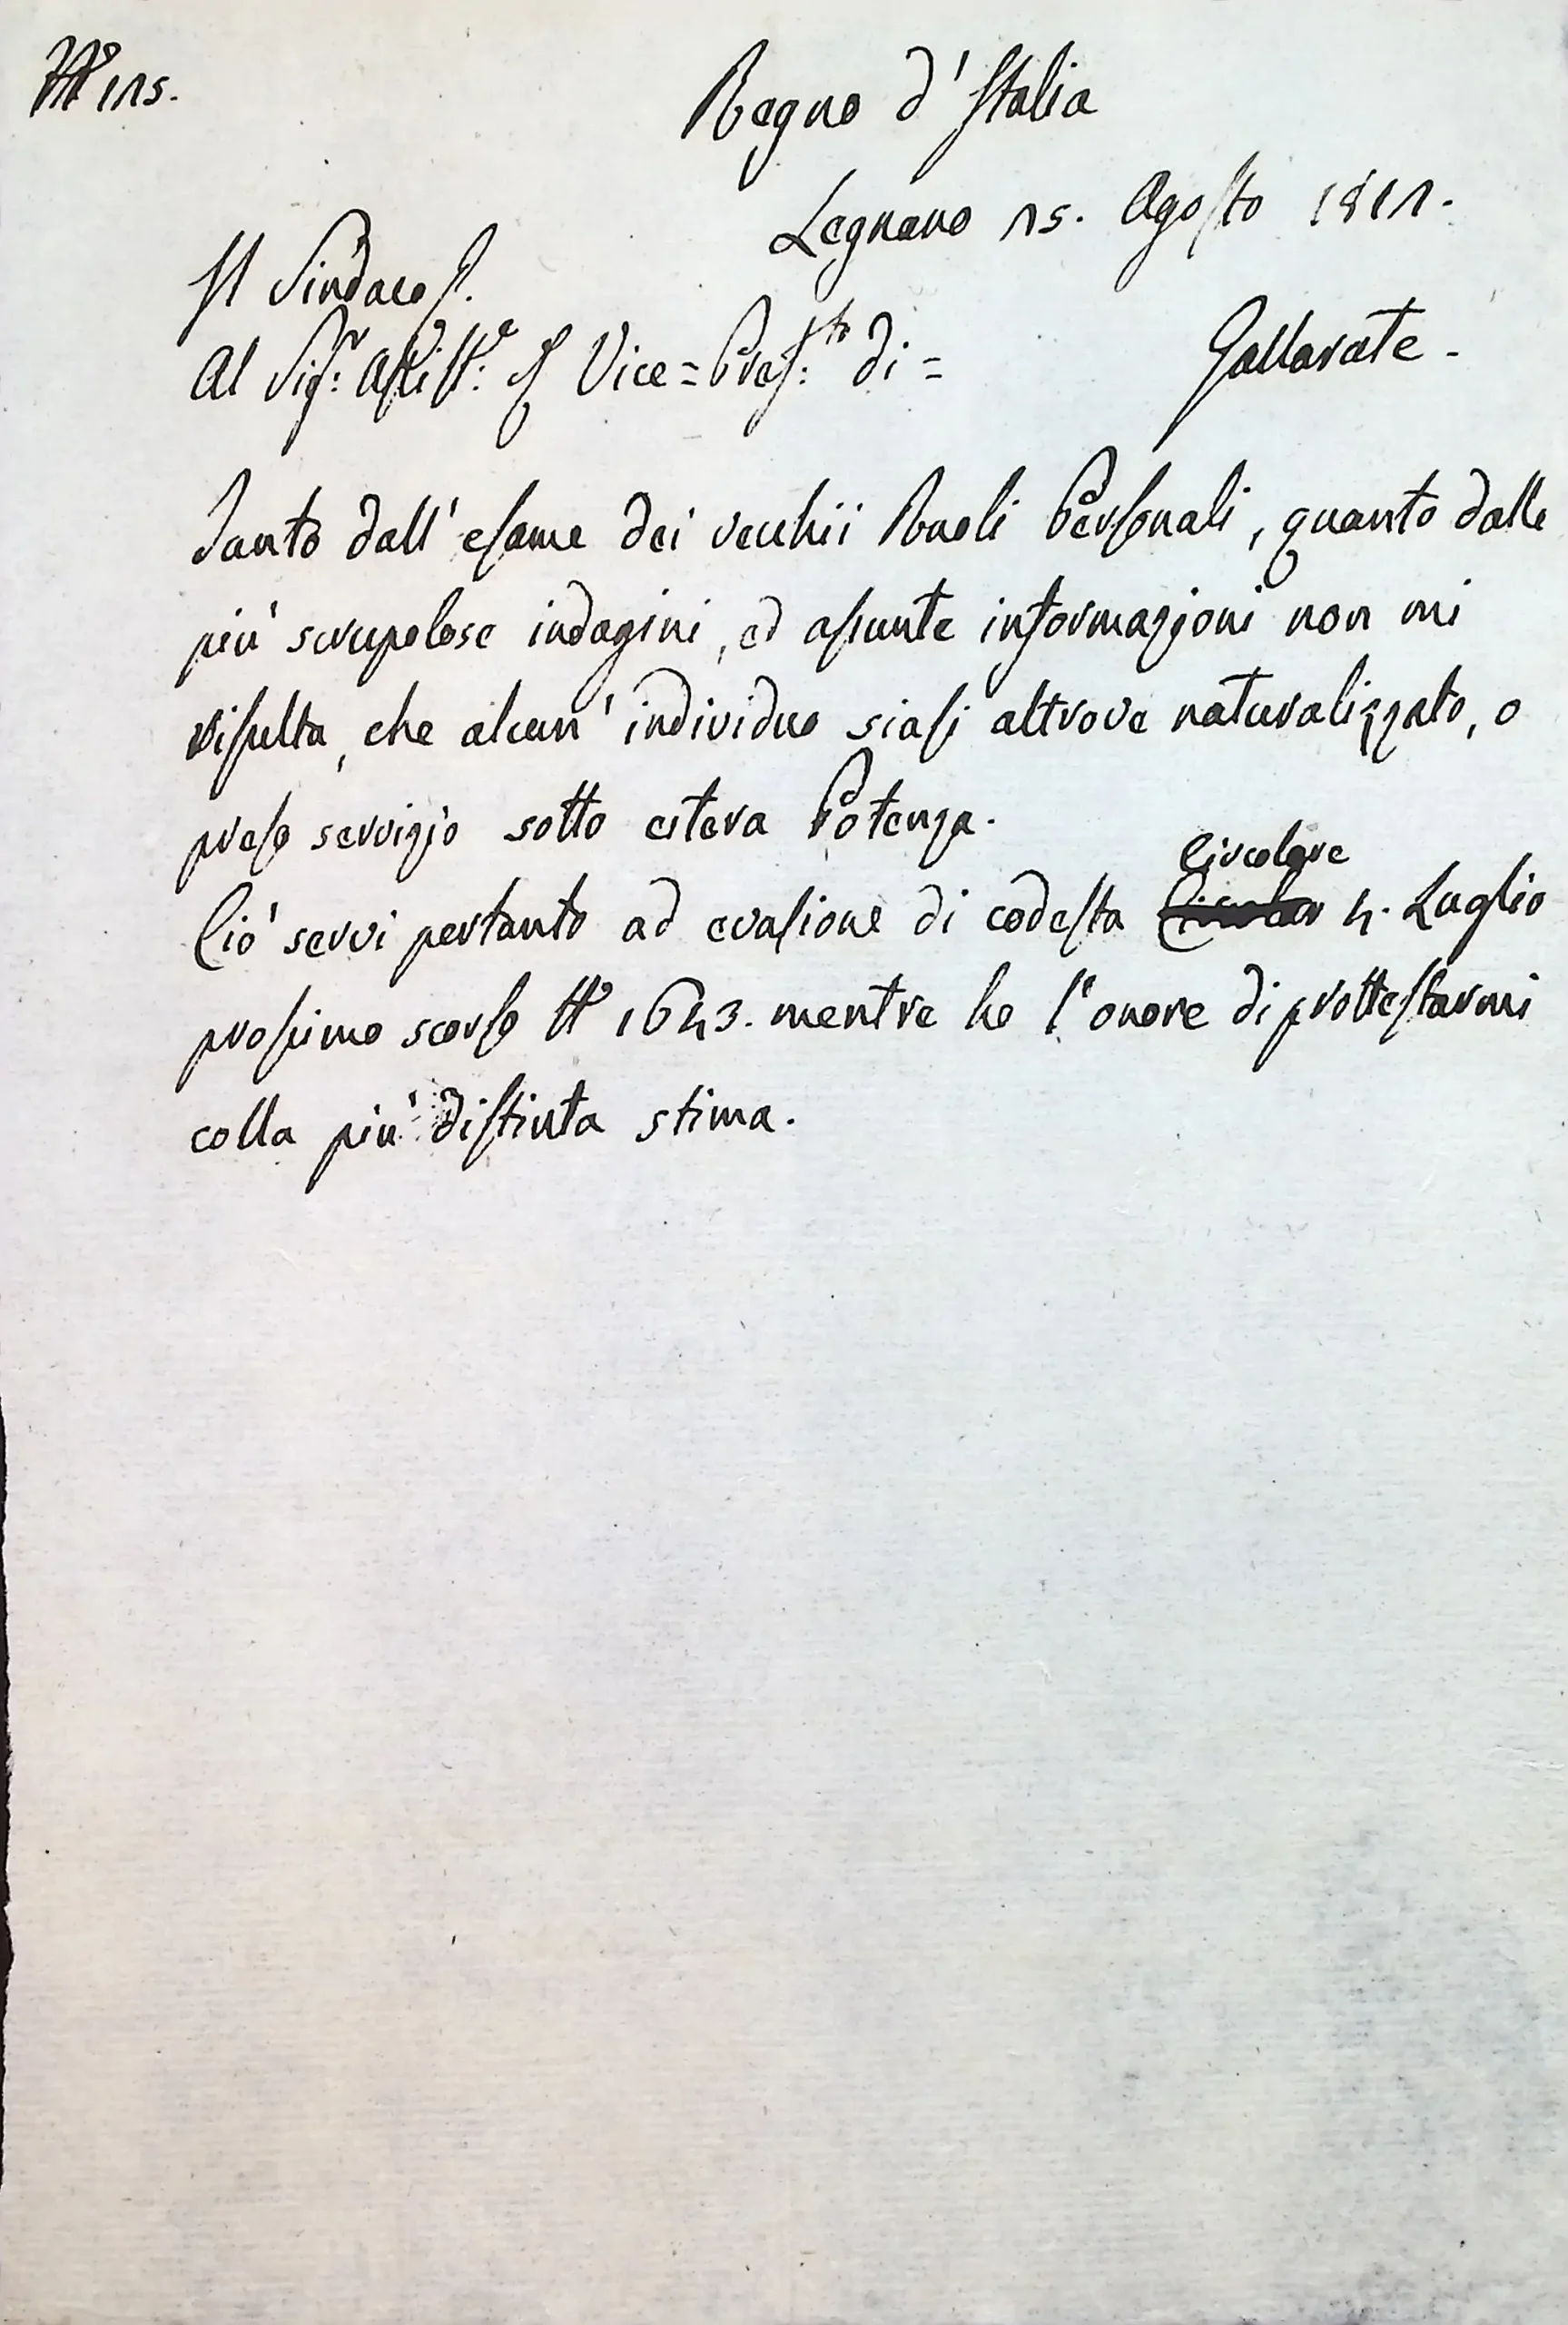 N° 115.
Regno d'Italia
Legnano 15. Agosto 1811.
Il Sindaco
Al Sig:r Assist:e ff Vice=Pref:to di = Gallarate.
Tanto dall' esame dei vecchii Ruoli Personali, quanto dalle
più scrupolose indagini, ed assunte informazioni non mi
risulta, che alcun' individuo siasi altrove naturalizzato, o
preso servizio sotto estera Potenza.
Circolare
Ciò servi pertanto ad evasione di codesta 4. Luglio
prossimo scorso N° 1643. mentre ho l'onore di prottestarmi
colla più distinta stima.